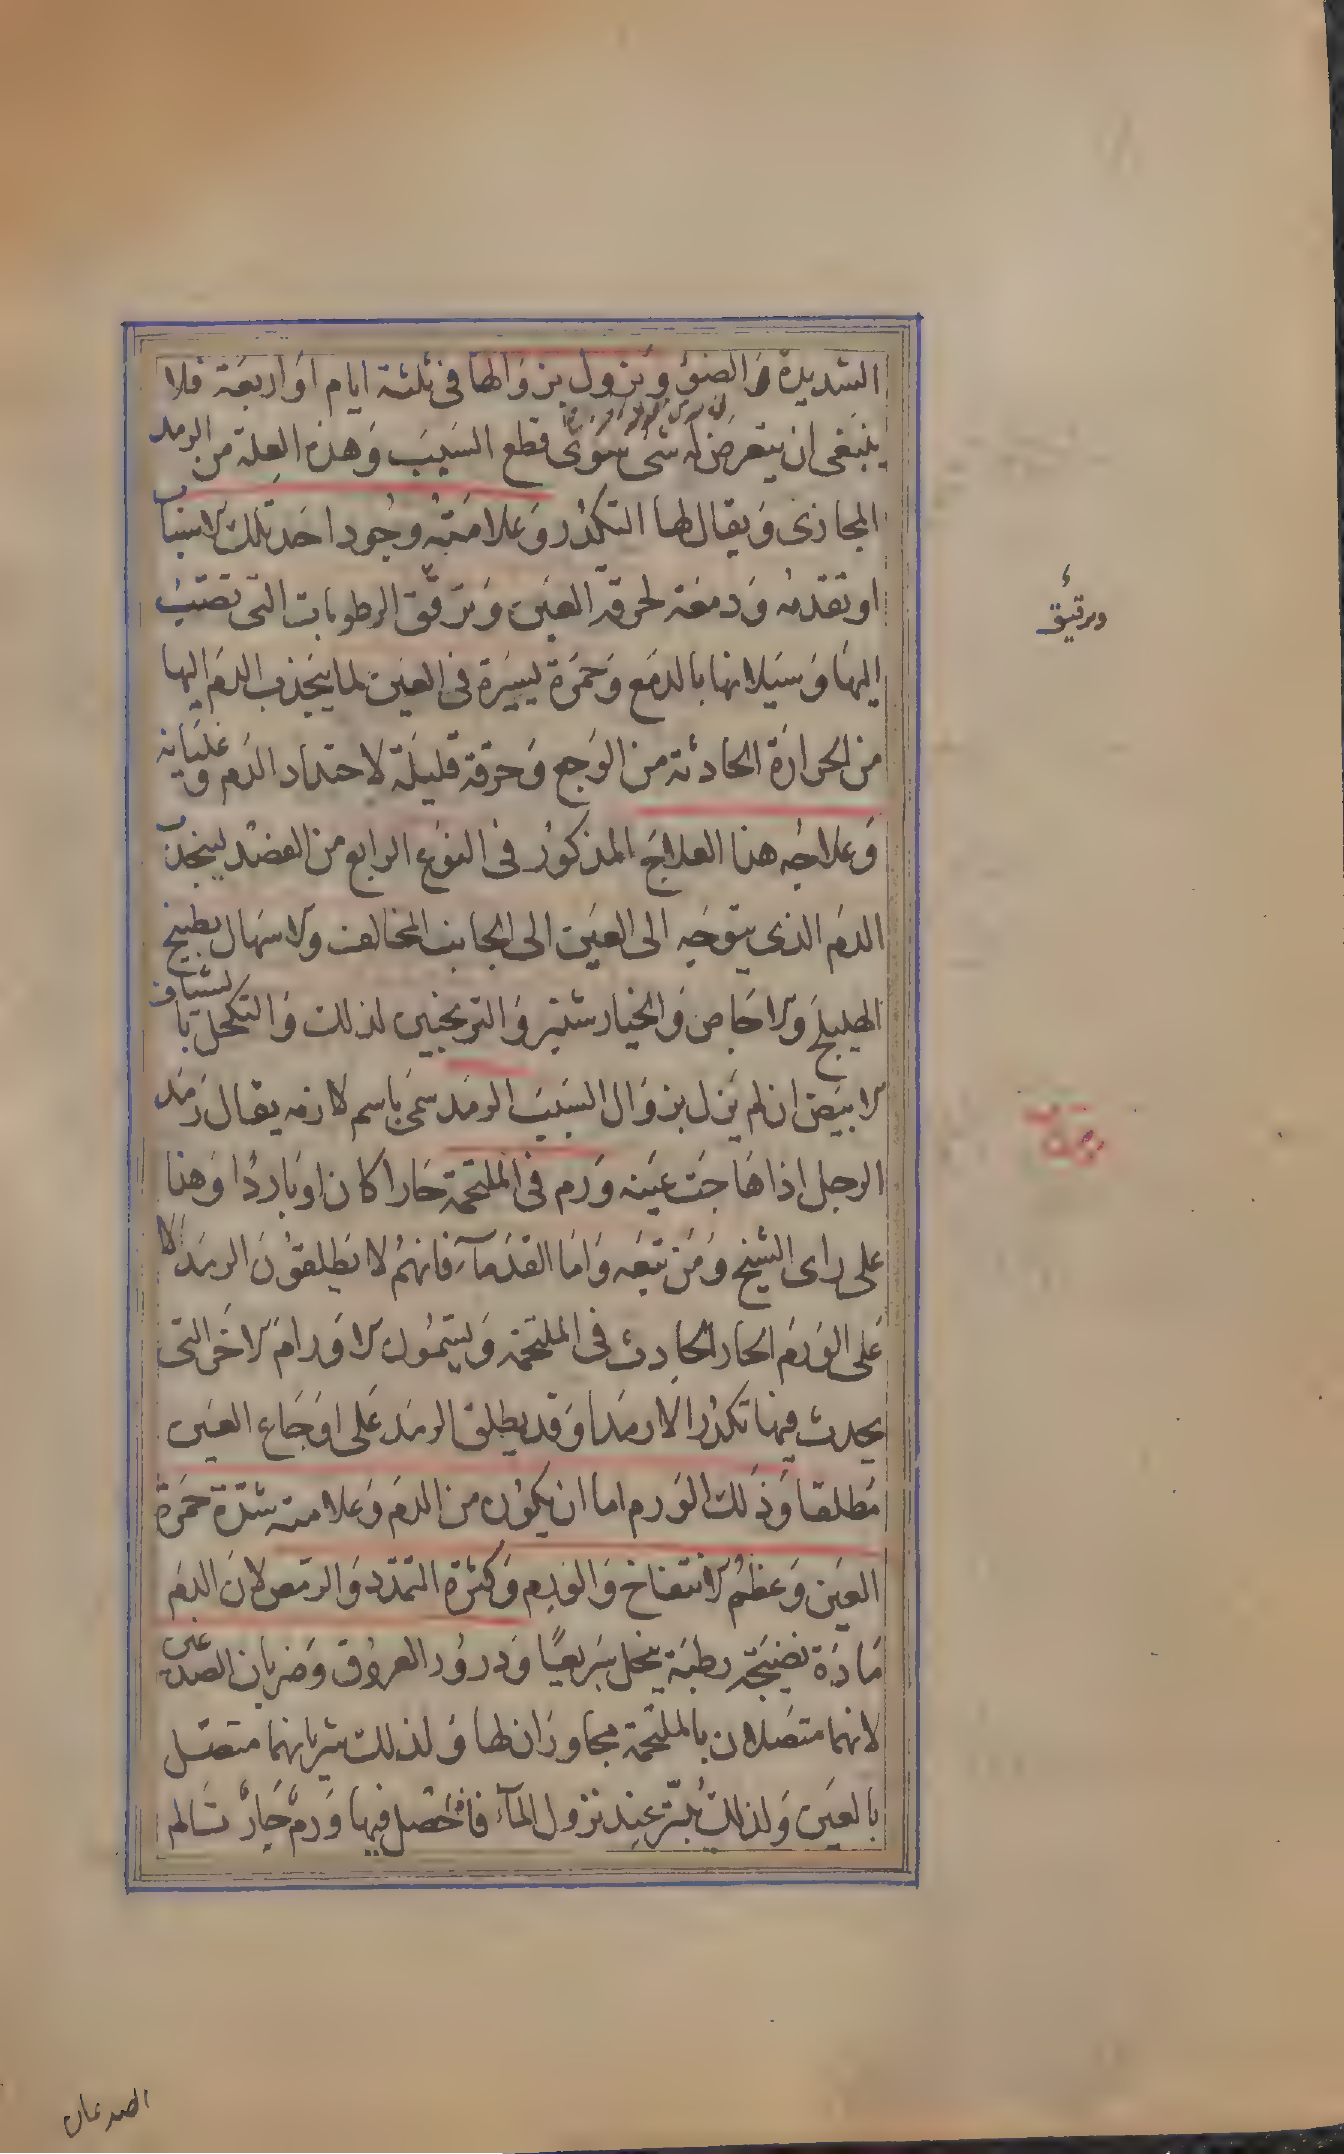 الشديدة والضوء ويزول بزوالها فى ثلثة ايام او اربعة فلا
ينبغى ان يتعرض له شى سوى قطع السبب وهذه العلة من الرمد
المجازى ويقال لها التكدر وعلامته وجود احد تلك الاسباب
او تقدمه ودمعة لحرقة العين وترقق الرطوبات التى تصب
اليها وسيلانها بالدمع وحمرة يسيرة فى العين لما ينجذب الدم اليها
من الحرارة الحادثة من الوجع وحرقة قليلة لاحتداد الدم وغليانه
وعلاجه هذا العلاج المذكور فى النوع الرابع من الفصد لينجذب
الدم الذى يتوجه الى العين الى الجانب المخالف والاسهال بطبيخ
الهليلج والاجاص والخيارشنبر والترنجبين لذلك والتكحل بالشياف
الابيض ان لم يزل بزوال السبب الرمد سمى باسم لازمه يقال رمد
الرجل اذا هاجت عينه ورم فى الملتحمة حارا كان او باردا وهذا
على راى الشيخ ومن تبعه واما القدماء فانهم لا يطلقون الرمد الا
على الورم الحار الحادث فى الملتحمة ويسمون الاورام الاخر التى
يحدث فيها تكدرا لا رمدا وقد يطلق الرمد على اوجاع العين
مطلقا وذلك الورم اما ان يكون من الدم وعلامته شدة حمرة
العين وعظم الانتفاخ والورم وكثرة التمدد والرمص لان الدم
مادة نضيجة رطبة ينحل سريعا ودرور العروق وضربان الصدغين
لانهما متصلان بالملتحمة مجاوران لها ولذلك شريانهما متصل
بالعين ولذلك يبتر عند نزول الماء فاذا حصل فيها ورم حار تالم
وترقيق
الصدغان